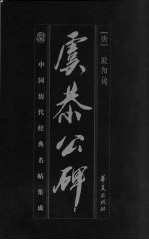 [唐] 欧阳询
虞恭公碑
中国历代经典名帖集成
华夏出版社